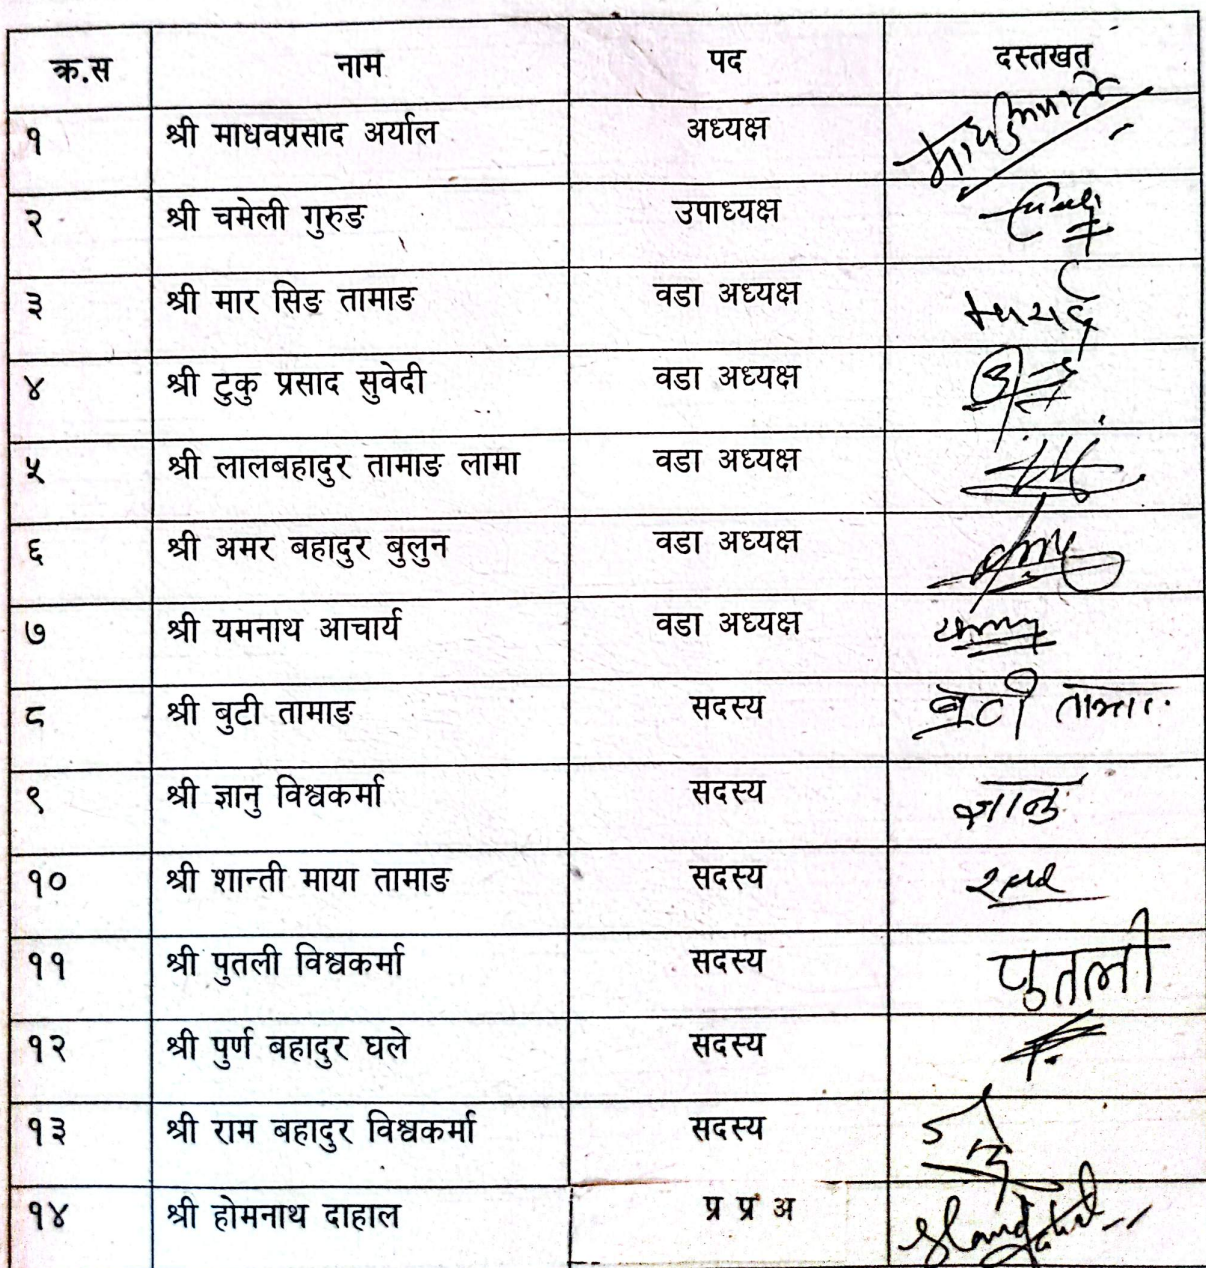 क्र.स नाम पद दस्तखत
१ श्री माधवप्रसाद अर्याल अध्यक्ष
२ श्री चमेली गुरुङ उपाध्यक्ष
३ श्री मार सिङ तामाङ वडा अध्यक्ष
४ श्री टुकु प्रसाद सुवेदी वडा अध्यक्ष
५ श्री लालबहादुर तामाङ लामा वडा अध्यक्ष
६ श्री अमर बहादुर बुलुन वडा अध्यक्ष
७ श्री यमनाथ आचार्य वडा अध्यक्ष
८ श्री बुटी तामाङ सदस्य बुटी
९ श्री ज्ञानु विश्वकर्मा सदस्य ज्ञानु
१० श्री शान्ती माया तामाङ सदस्य
११ श्री पुतली विश्वकर्मा सदस्य पुतली
१२ श्री पुर्ण बहादुर घले सदस्य
१३ श्री राम बहादुर विश्वकर्मा सदस्य
१४ श्री होमनाथ दाहाल प्र प्र अ